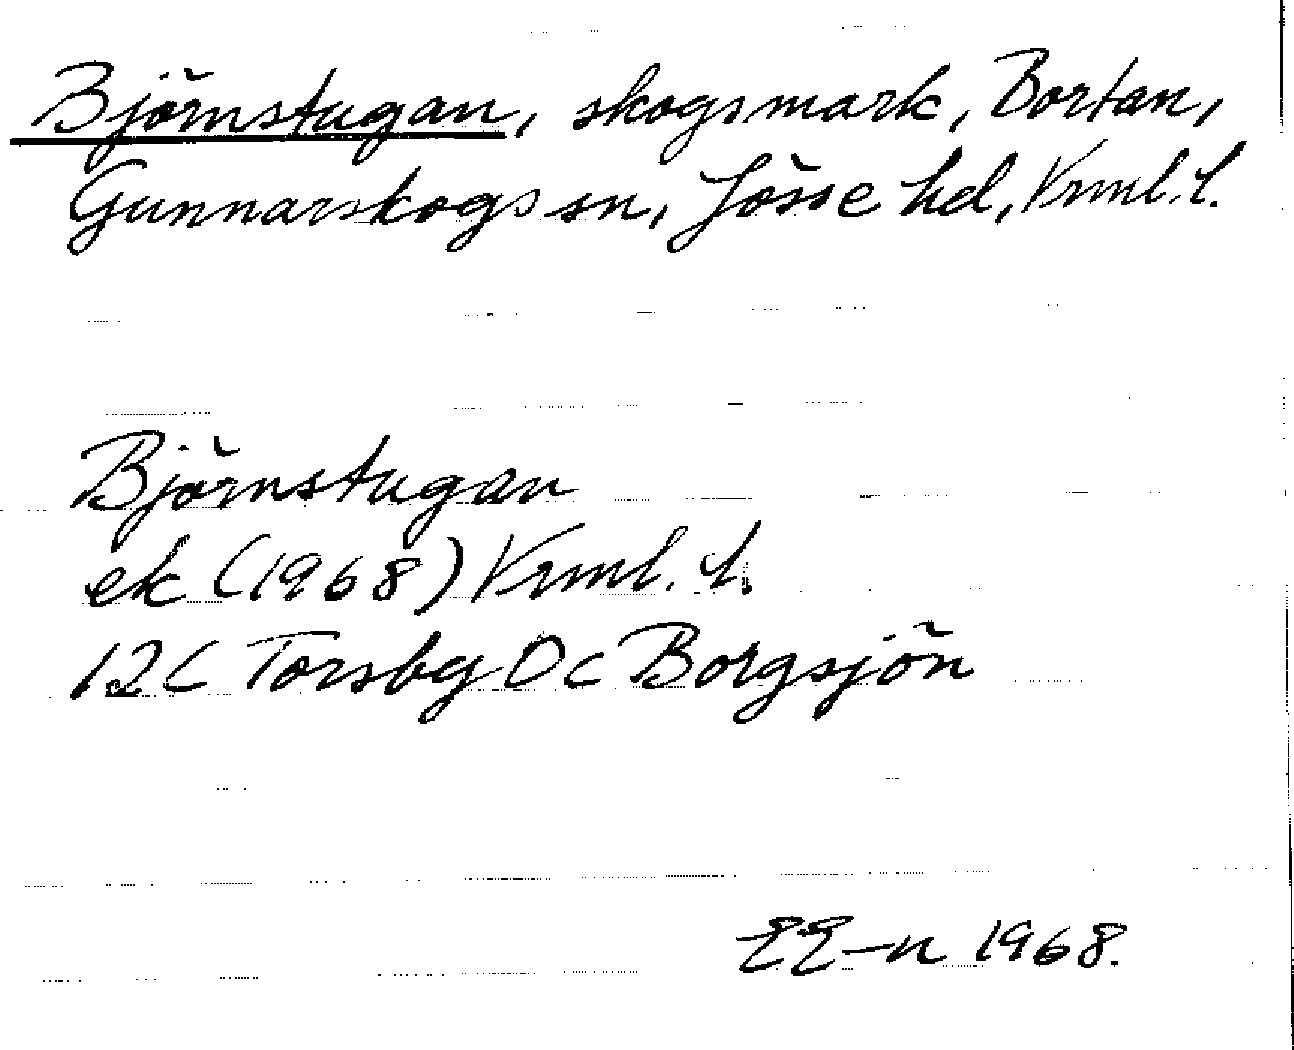 Björnstugan, skogsmark, Bortan,
Gunnarskogs sn, Jösse hd, Vrml. l.
Björnstugan
ek (1968) Vrml. l.
12C Torsby 0c Borgsjön
EE-n 1968.